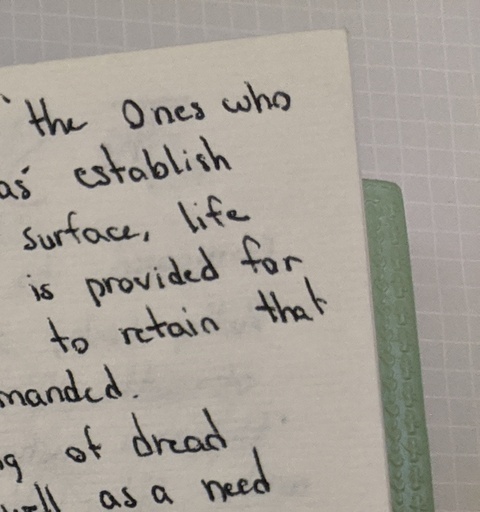 the Ones who
as establish
surface, life
is provided for
to retain that
manded.
g of dread
well as a need